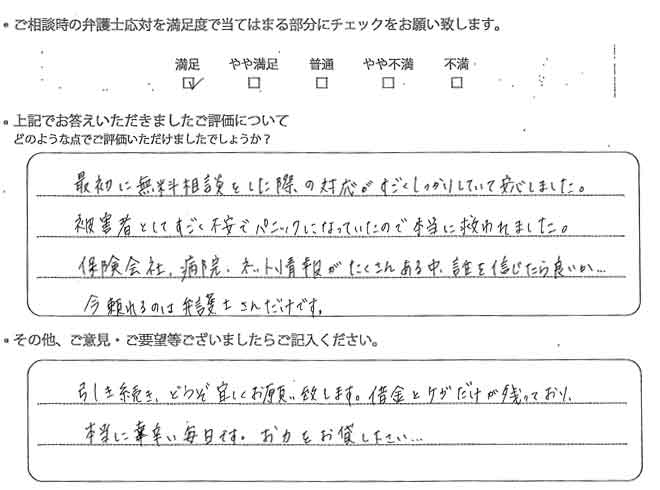 ・ご相談時の弁護士応対を満足度で当てはまる部分にチェックをお願い致します。
満足 やや満足 普通 やや不満 不満
☑ □ □ □ □
・上記でお答えいただきましたご評価について
どのような点でご評価いただけましたでしょうか?
最初に無料相談をした際の対応がすごくしっかりしていて安心しました。
被害者としてすごく不安でパニックになっていたので本当に救われました。
保険会社、病院、ネット情報がたくさんある中、誰を信じたら良いか…
今頼れるのは弁護士さんだけです。
・その他、ご意見・ご要望等ございましたらご記入ください。
引き続き、どうぞ宜しくお願い致します。借金とケガだけが残っており、
本当に辛い毎日です。お力をお貸し下さい…